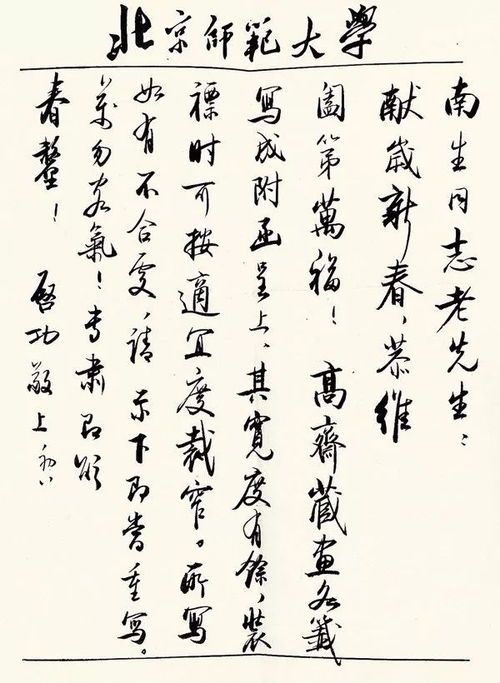 北京師範大學
南生同志老先生：
献歲新春，恭維
闔第萬福！高齋藏畫各籤
寫成附函呈上，其寬度有餘，裝
褾时可按適宜度裁窄。所寫
如有不合处，请示下即当重写。
萬勿客氣！专肅即頌
春釐！启功敬上 初八